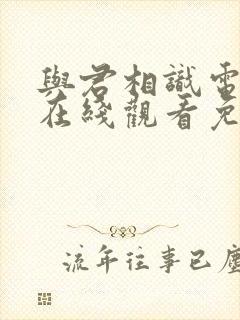 與君相識電
在綫觀看免
流年往事已塵